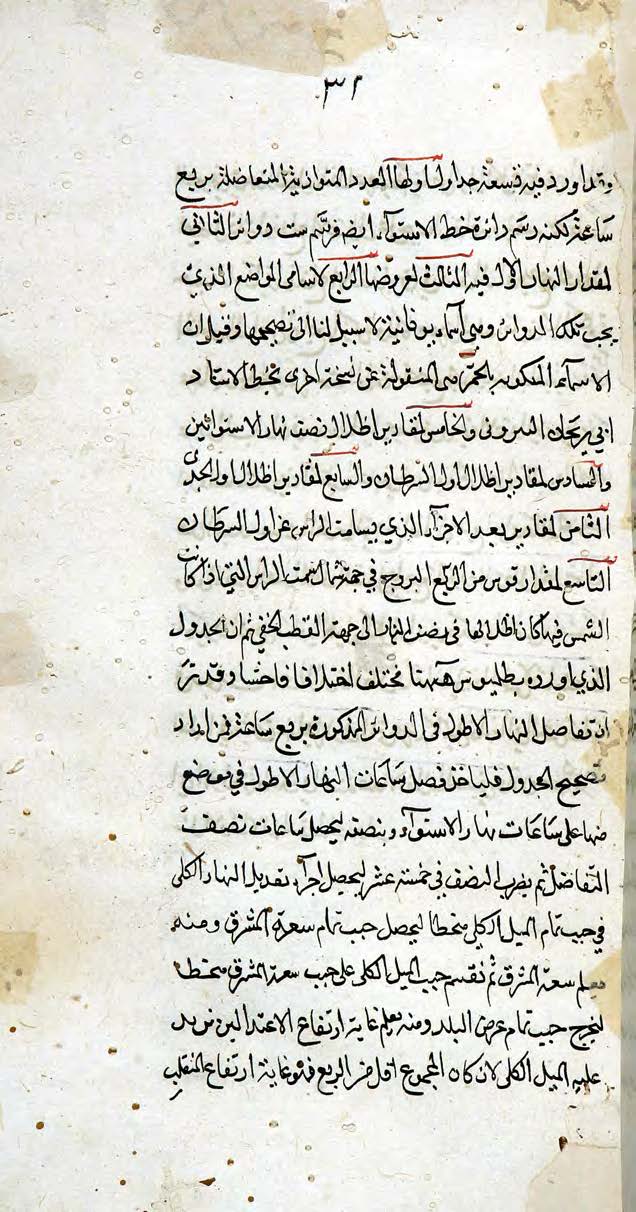 ٣١
وقد اورد فيه تسعة جداول اولها العدد المتوازية المتفاضلة بربع
ساعة لكنه رسم دائرة خط الاستواء ايضا فرسم ست دوائر الثاني
لمقدار النهار الاول فيه الثالث لعروضها الرابع لاسامى المواضع الذى
يجب تلك الدوائر وهى اسماء يونانية لا سبيل لنا الى تصحيحها وقيل ان
الاسماء المكتوبه بالحمرة هى المنقولة عن نسخة اخرى بخط الاستاد
ابي ريحان البيرونى والخامس لمقادير اظلال نصف نهار الاستوائين
والسادس لمقادير اظلال اول السرطان والسابع لمقادير اظلال اول الجدى
الثامن لمقادير بعد الاجزاء الذي يسامت الراس عن اول السرطان
التاسع لمقدار قوس من البروج في جهة شمال سمت الراس التي اذا كانت
الشمس فيها كان اظلالها فى نصف النهار الى جهة القطب الخفي ثم ان الجدول
الذي اورده بطلميوس ههنا مختلف اختلافا فاحشا وقد تر
ان تفاضل النهار الاطول فى الدوائر المذكورة بربع ساعة فمن اراد
تصحيح الجدول فلياخذ فضل ساعات النهار الاطول في موضع
منها على ساعات نهار الاستواء وينصفه ليحصل ساعات نصف
التفاضل ثم يضرب النصف فى خمسة عشر ليحصل اجزاء تعديل النهار الكلى
في جيب تمام الميل الكلي منحطا ليحصل جيب تمام سعة المشرق ومنه
يعلم سعة المشرق ثم نقسم جيب الميل الكلى على جيب سعة المشرق منحطا
ليخرج جيب تمام عرض البلد ومنه يعلم غاية ارتفاع الاعتدالين نزيد
عليه الميل الكلى لان كان المجموع اقل من الربع فهو غاية ارتفاع المنقلب